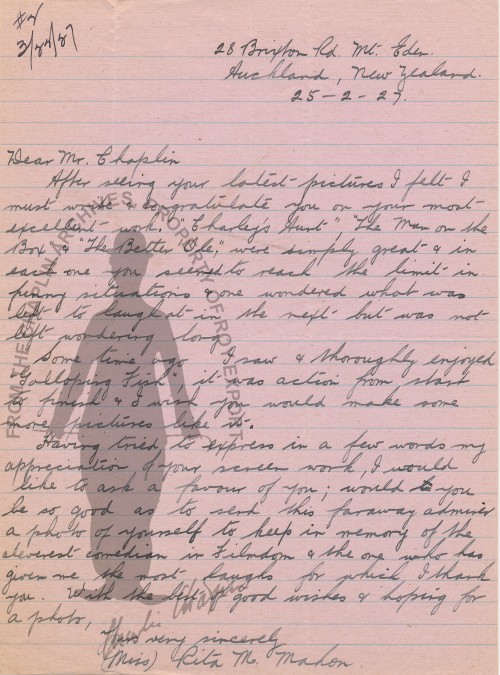 #4
3/24/27
28 Brixton Rd. Mt. Eden.
Auckland, New Zealand.
25-2-27.
Dear Mr. Chaplin
After seeing your latest pictures I felt I
must write & congratulate you on your most
excellent work. "Charley's Aunt", "The Man on the
Box" & "The Better 'Ole," were simply great & in
each one you seemed to reach the limit in
funny situations & one wondered what was
left to laugh at in the next but was not
left wondering long.
Some time ago I saw & thoroughly enjoyed
"Galloping Fish" it was action from start
to finish & I wish you would make some
more pictures like it.
Having tried to express in a few words my
appreciation of your screen work, I would
like to ask a favour of you; would you
be so good as to send this faraway admirer
a photo of yourself to keep in memory of the
cleverest comedian in Filmdom & the one who has
given me the most laughs for which, I thank
you. With the best of good wishes & hoping for
a photo,
Yours very sincerely
(Miss) Rita M. Mahon.
FROM THE CHAPLIN ARCHIVES. PROPERTY OF ROY EXPORT
Charlie Chaplin